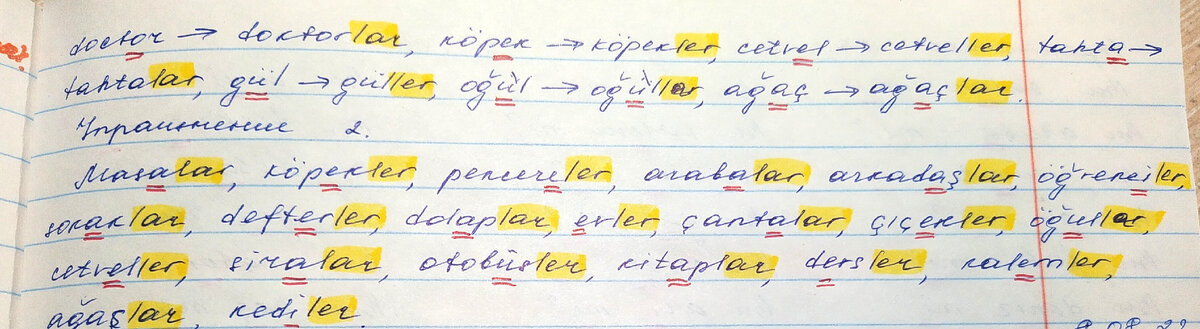 doctor → doktorlar, köpek → köpekler, cetvel → cetveller, tahta →
tahtalar, gül → güller, oğül → oğüllar, ağaç → ağaçlar.
Упражнение 2.
Masalar, köpekler, pencereler, arabalar, arkadaşlar, öğrenciler,
sokaklar, defterler, dolaplar, evler, çantalar, çıçekler, öğullar,
cetveller, sıralar, otobüsler, kitaplar, dersler, kalemler,
ağaşlar, kediler.